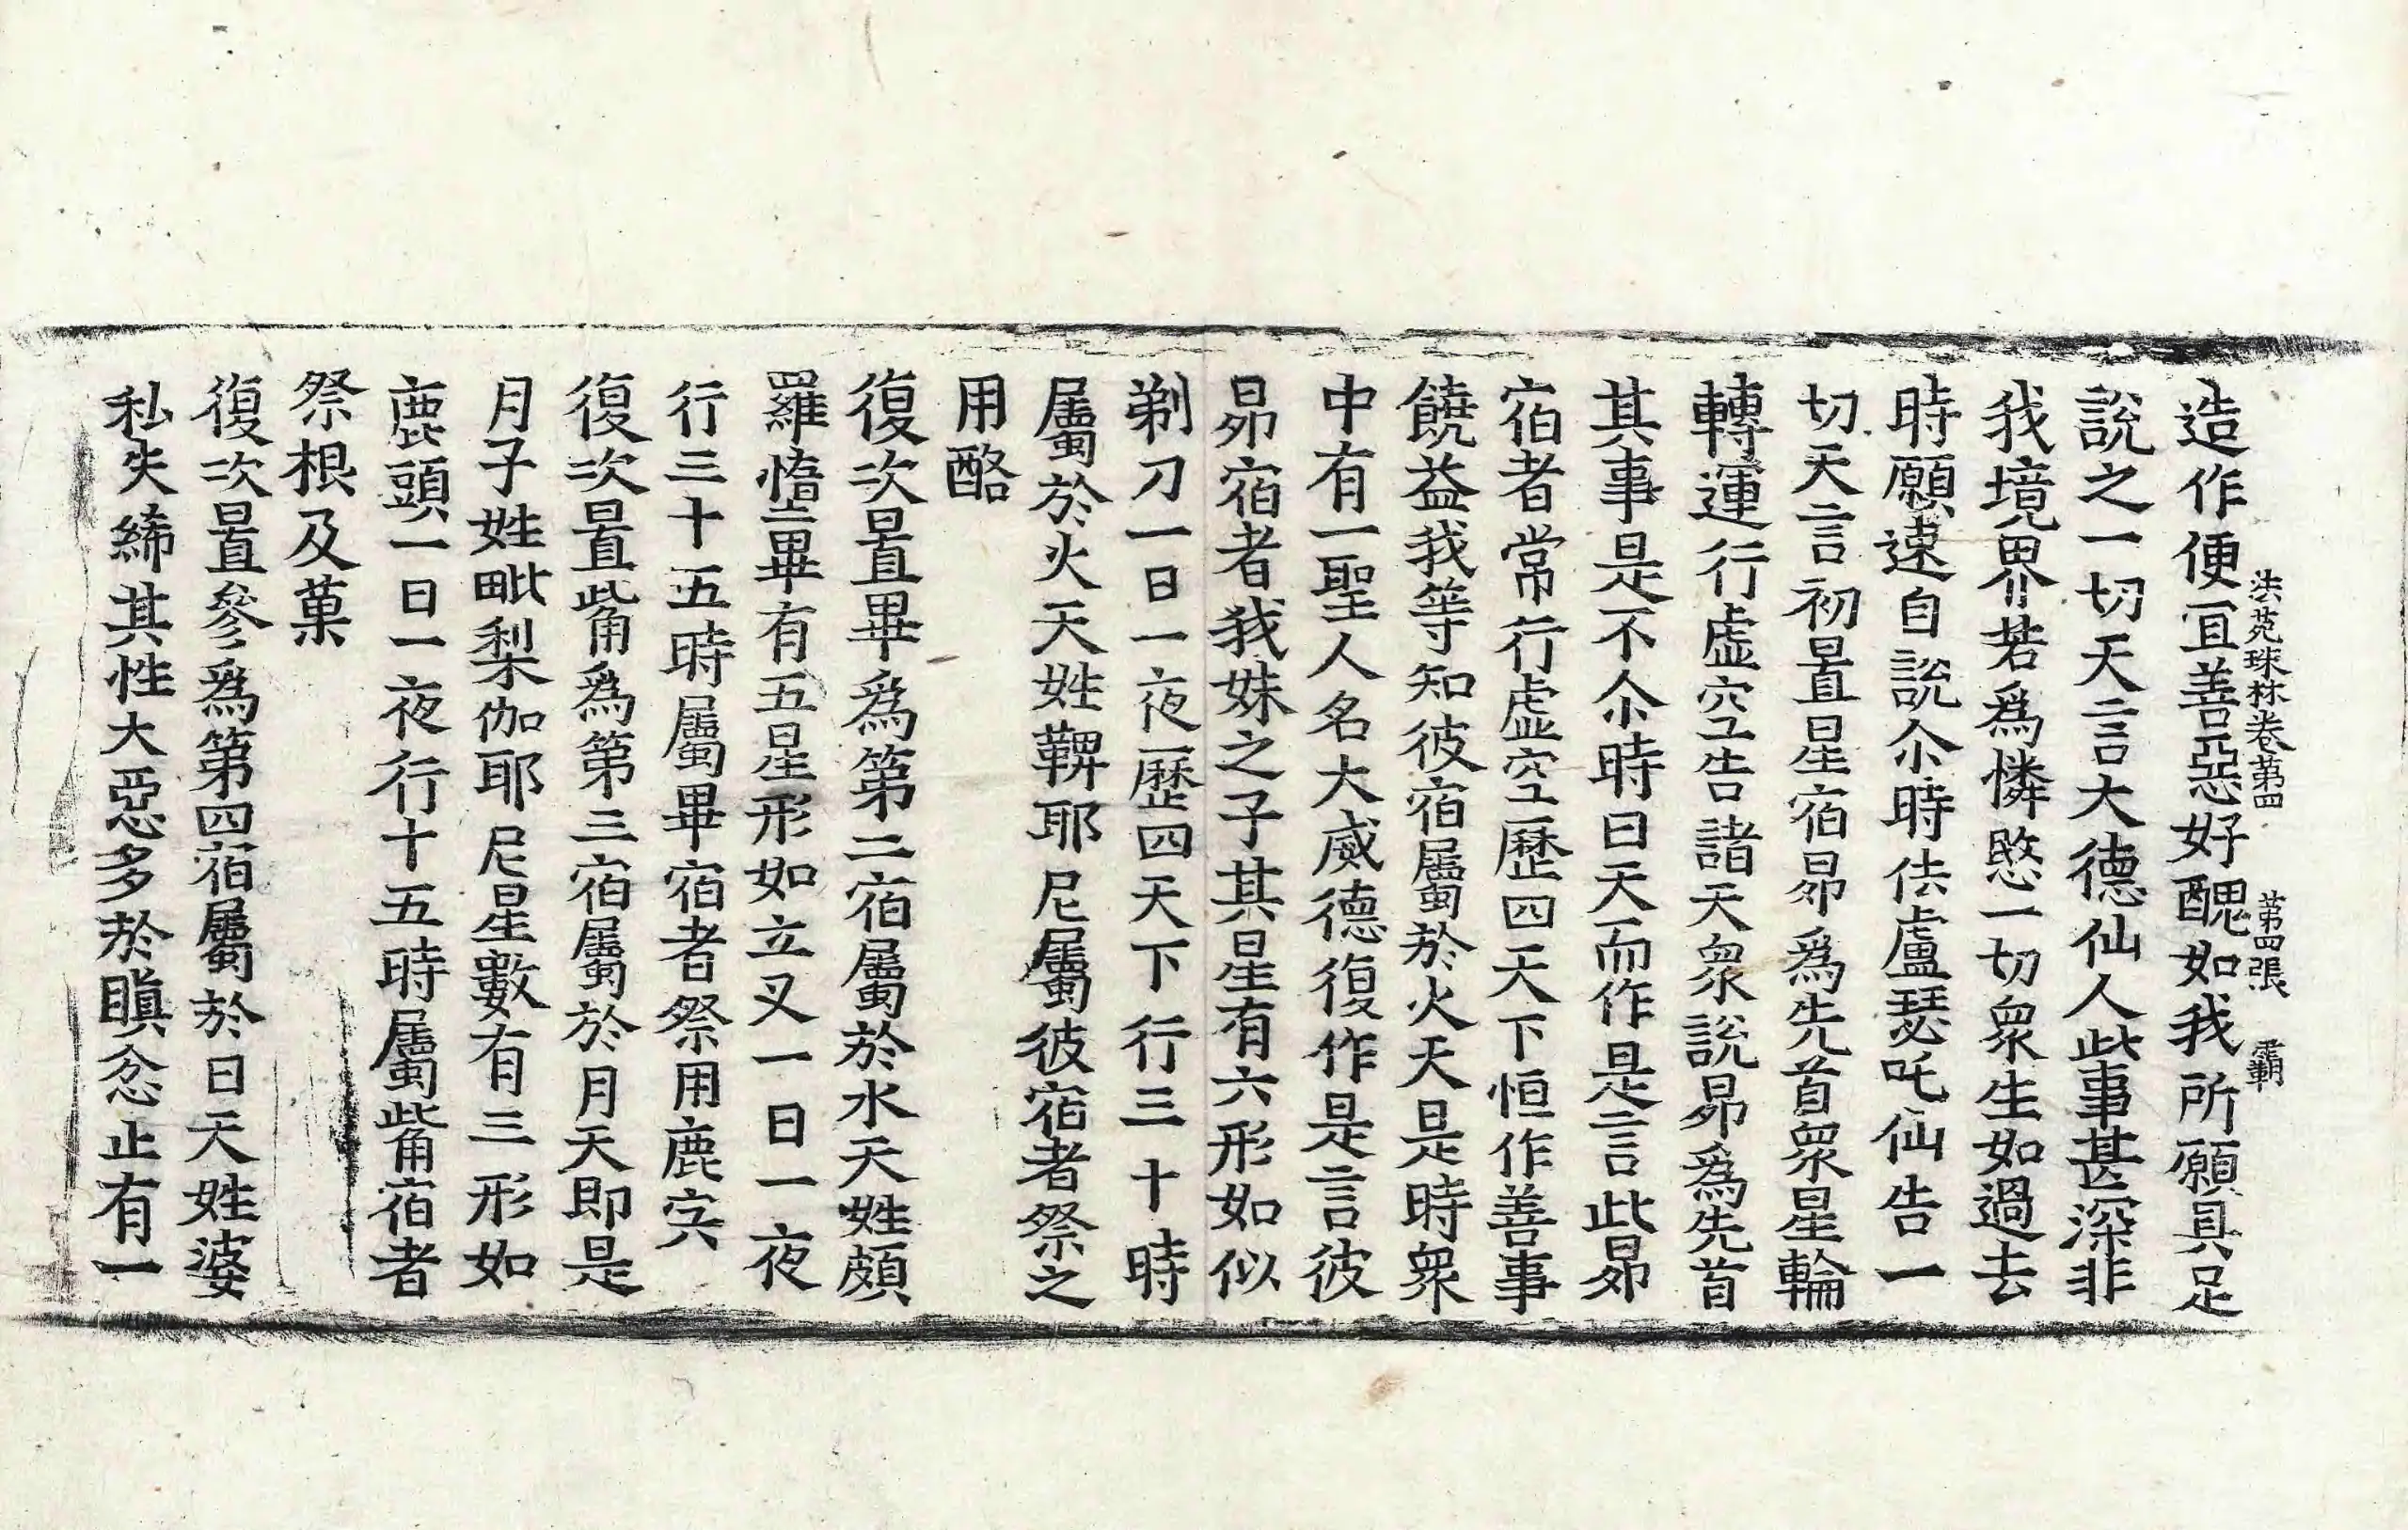 法苑珠林卷第四 第四張 霸
造作便冝善惡好醜如我所願具足
說之一切天言大德仙人此事甚深非
我境界若爲憐愍一切衆生如過去
時願速自說尒時佉盧瑟吒仙告一
切天言初置星宿昴爲先首衆星輪
轉運行虛空告諸天衆說昴爲先首
其事是不尒時日天而作是言此昴
宿者常行虛空歷四天下恒作善事
饒益我等知彼宿屬於火天是時衆
中有一聖人名大威德復作是言彼
昴宿者我妹之子其星有六形如似
剃刀一日一夜歷四天下行三十時
屬於火天姓鞞耶尼屬彼宿者祭之
用酪
復次置畢爲第二宿屬於水天姓頗
羅惰畢有五星形如立叉一日一夜
行三十五時屬畢宿者祭用鹿宍
復次置觜爲第三宿屬於月天即是
月子姓毗梨伽耶尼星數有三形如
鹿頭一日一夜行十五時屬觜宿者
祭根及菓
復次置參爲第四宿屬於日天姓婆
私失絺其性大惡多於瞋忿止有一